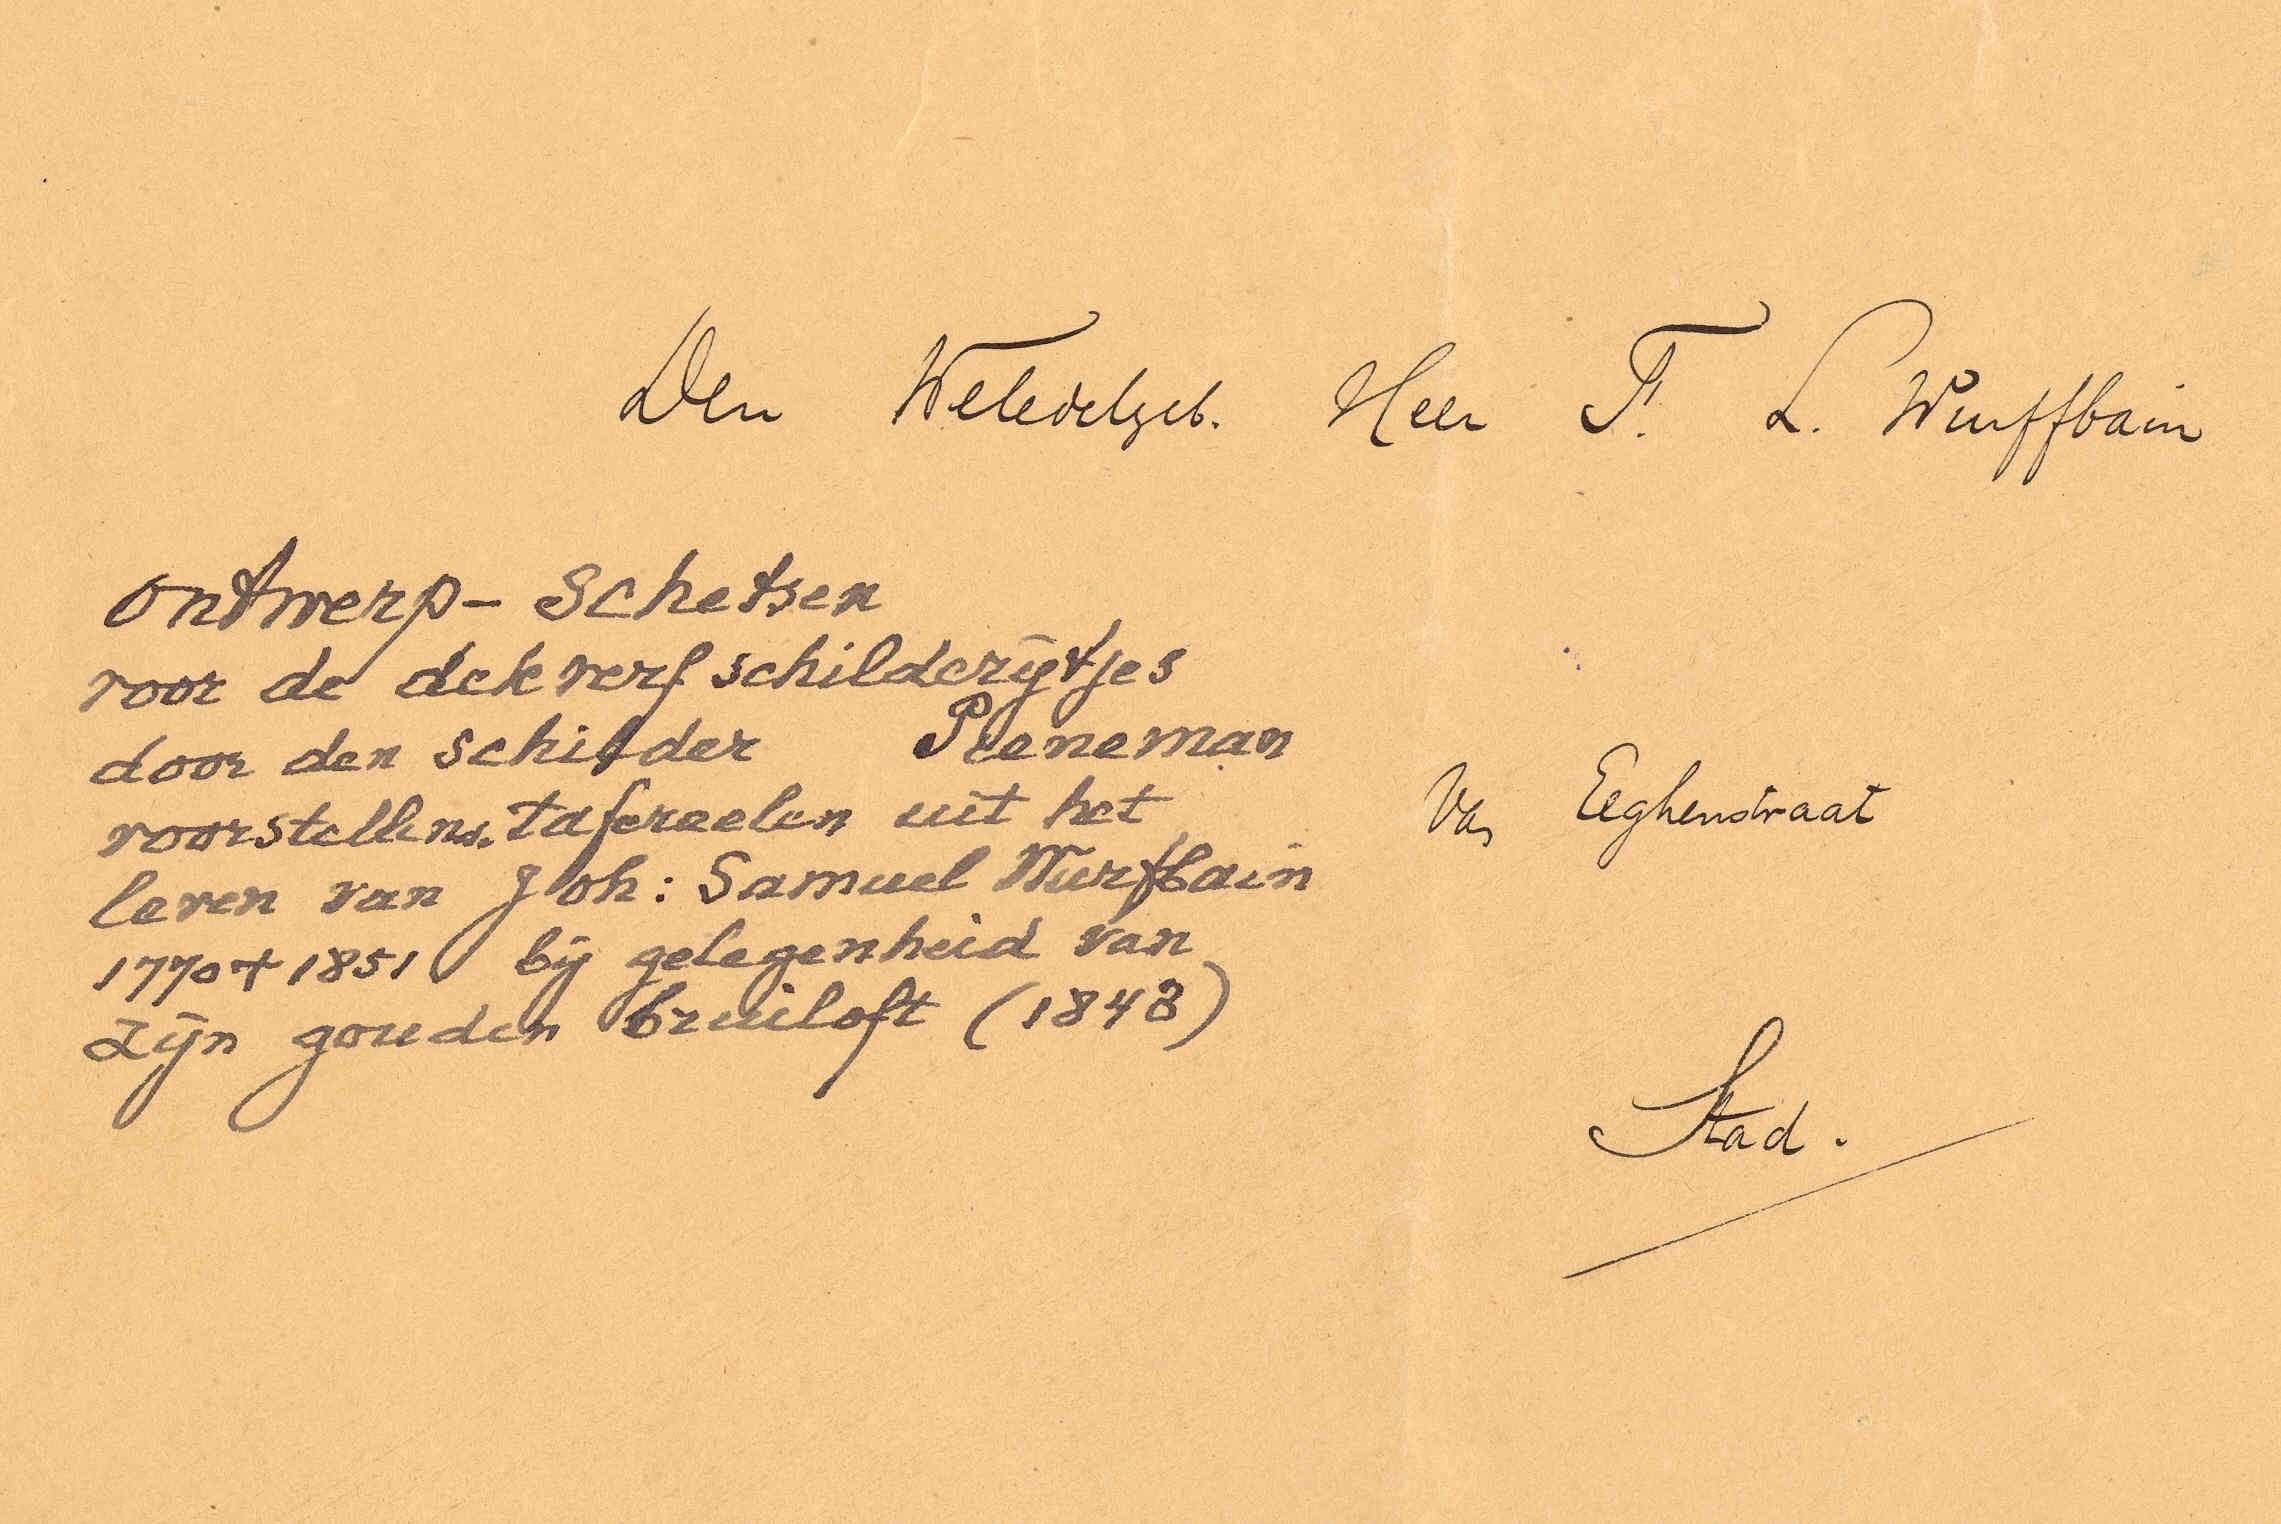 Den Weledelgeb. Heer F. L. Wurffbain
ontwerp-schetsen
voor de dekverf schilderijtjes
door den schilder Pieneman
voorstellend. tafereelen uit het
leven van Joh: Samuel Wurfbain
1770 + 1851 bij gelegenheid van
zijn gouden bruiloft (1848)
Van Eeghenstraat
Stad.